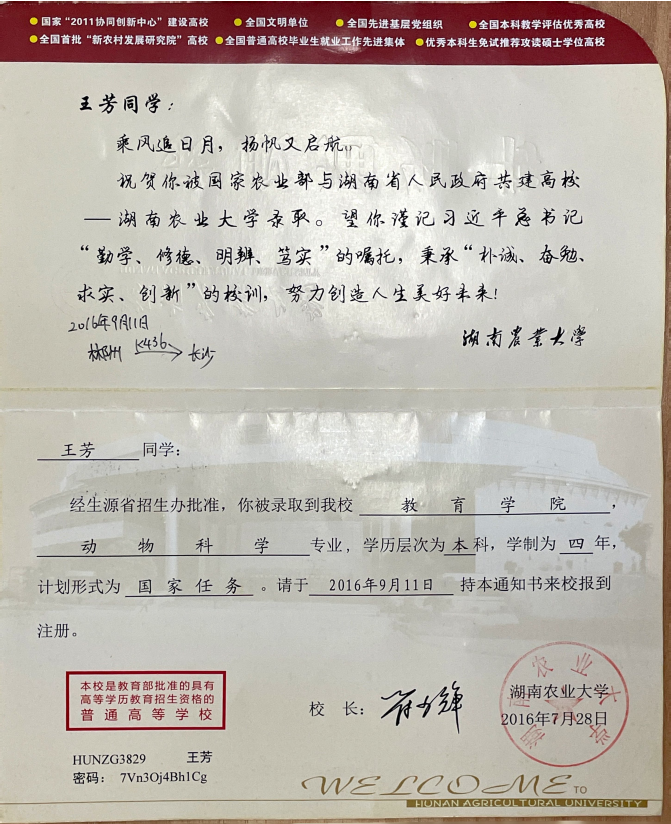 ● 国家“2011协同创新中心”建设高校 ● 全国文明单位 ● 全国先进基层党组织 ● 全国本科教学评估优秀高校
● 全国首批“新农村发展研究院”高校 ● 全国普通高校毕业生就业工作先进集体 ● 优秀本科生免试推荐攻读硕士学位高校
王芳同学：
乘风追日月，扬帆又启航。
祝贺你被国家农业部与湖南省人民政府共建高校
——湖南农业大学录取。望你谨记习近平总书记
“勤学、修德、明辨、笃实”的嘱托，秉承“朴诚、奋勉、
求实、创新”的校训，努力创造人生美好未来！
2016年9月11日
郴州 K436 长沙
湖南农业大学
王芳 同学：
经生源省招生办批准，你被录取到我校 教育学院 ，
动物科学 专业，学历层次为 本 科，学制为 四 年，
计划形式为 国家任务 。请于 2016年9月11日 持本通知书来校报到
注册。
本校是教育部批准的具有
高等学历教育招生资格的
普通高等学校
校 长：
湖南农业大学
湖南农业大学
2016年7月28日
HUNZG3829 王芳
密码： 7Vn3Oj4Bh1Cg
WELCOME TO
HUNAN AGRICULTURAL UNIVERSITY